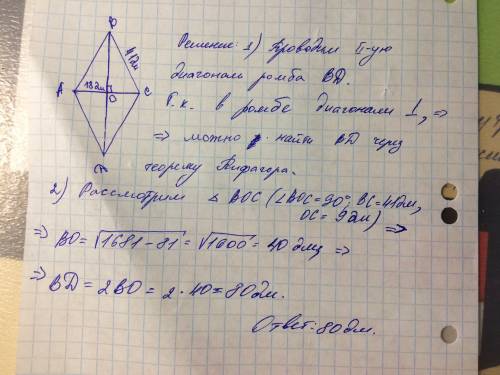 B
41дм
Решение: 1) Проводим II-ую
A 18дм O C
диагональ ромба BД.
Т.к. в ромбе диагонали ⊥, =>
=> можно найти BД через
теорему Пифагора.
2) Рассмотрим △ BOC (∠BOC=90°, BC=41дм,
OC=9дм) =>
=> BO=√1681-81=√1600=40дм =>
=> BД=2BO=2·40=80дм.
Ответ: 80дм.